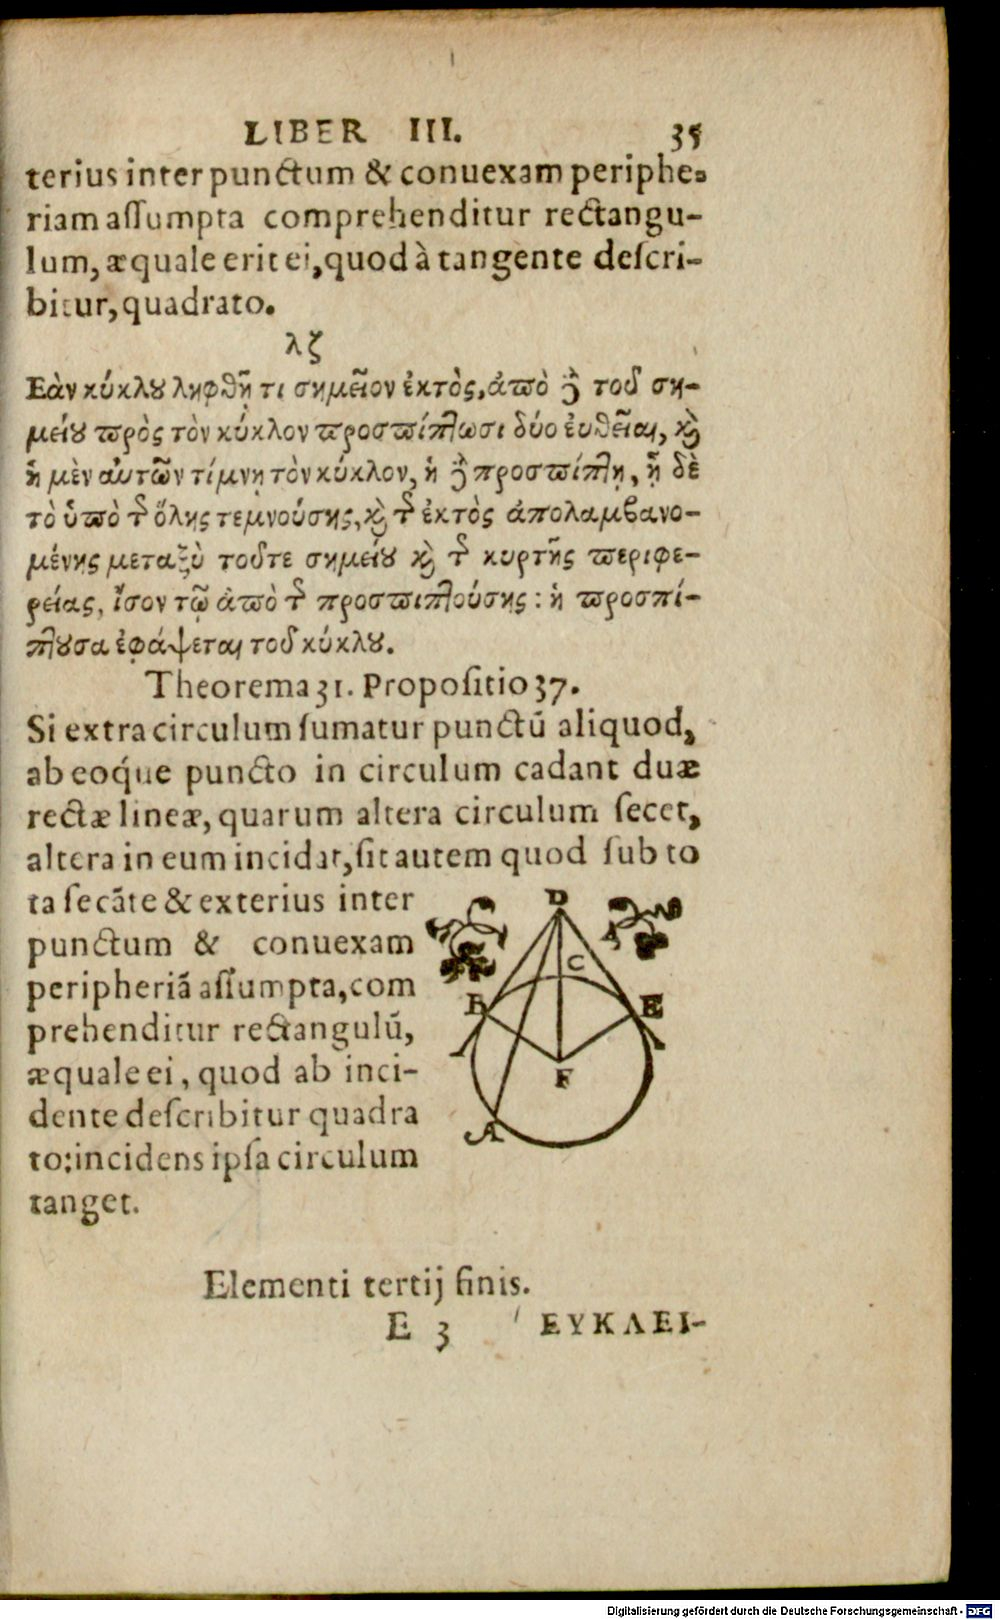 LIBER III. 35
terius inter punctum & conuexam periphe-
riam assumpta comprehenditur rectangu-
lum, æquale erit ei, quod à tangente descri-
bitur, quadrato.
λζ
Εὰν κύκλȣ ληφθῆ τι σημεῖον ἐκτὸς, ἀπὸ ϗ̀ τοῦ ση-
μείȣ πρὸς τὸν κύκλον προσπίπτωσι δύο ἐυθεῖαι, ϗ
ἡ μὲν αὐτῶν τέμνῃ τὸν κύκλον, ἡ προσπίπτῃ, ᾖ δὲ
τὸ ὑπὸ τ̃ ὅλης τεμνούσης, ϗ τ̃ ἐκτὸς ἀπολαμβανο-
μένης μεταξὺ τοῦτε σημείȣ ϗ τ̃ κυρτῆς περιφε-
ρείας, ἴσον τῷ ἀπὸ τ̃ προσπιπτούσης: ἡ προσπί-
πτȣσα ἐφάψεται τοῦ κύκλȣ.
Theorema 31. Propositio 37.
Si extra circulum sumatur punctū aliquod,
ab eoq́ue puncto in circulum cadant duæ
rectæ lineæ, quarum altera circulum secet,
altera in eum incidat, sit autem quod sub to
ta secāte & exterius inter
punctum & conuexam
peripheriā assumpta, com
prehenditur rectangulū,
æquale ei, quod ab inci-
dente describitur quadra
to: incidens ipsa circulum
tanget.
D
C
B E
F
A
Elementi tertij finis.
E 3 ΕΥΚΛΕΙ-
Digitalisierung gefördert durch die Deutsche Forschungsgemeinschaft - DFG